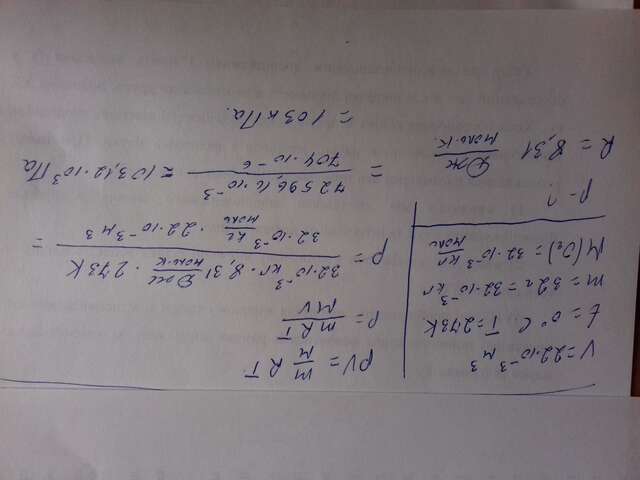 V = 22·10⁻³ м³
t = 0° C T = 273 K
m = 32 г = 32·10⁻³ кг
M(O₂) = 32·10⁻³ кг/моль
p - ?
R = 8,31 Дж/моль·К
pV = m/M RT
p = mRT/MV
p = (32·10⁻³ кг · 8,31 Дж/моль·К · 273 K)/(32·10⁻³ кг/моль · 22·10⁻³ м³) =
= 72596,16·10⁻³/704·10⁻⁶ = 103,12·10³ Па
= 103 кПа.